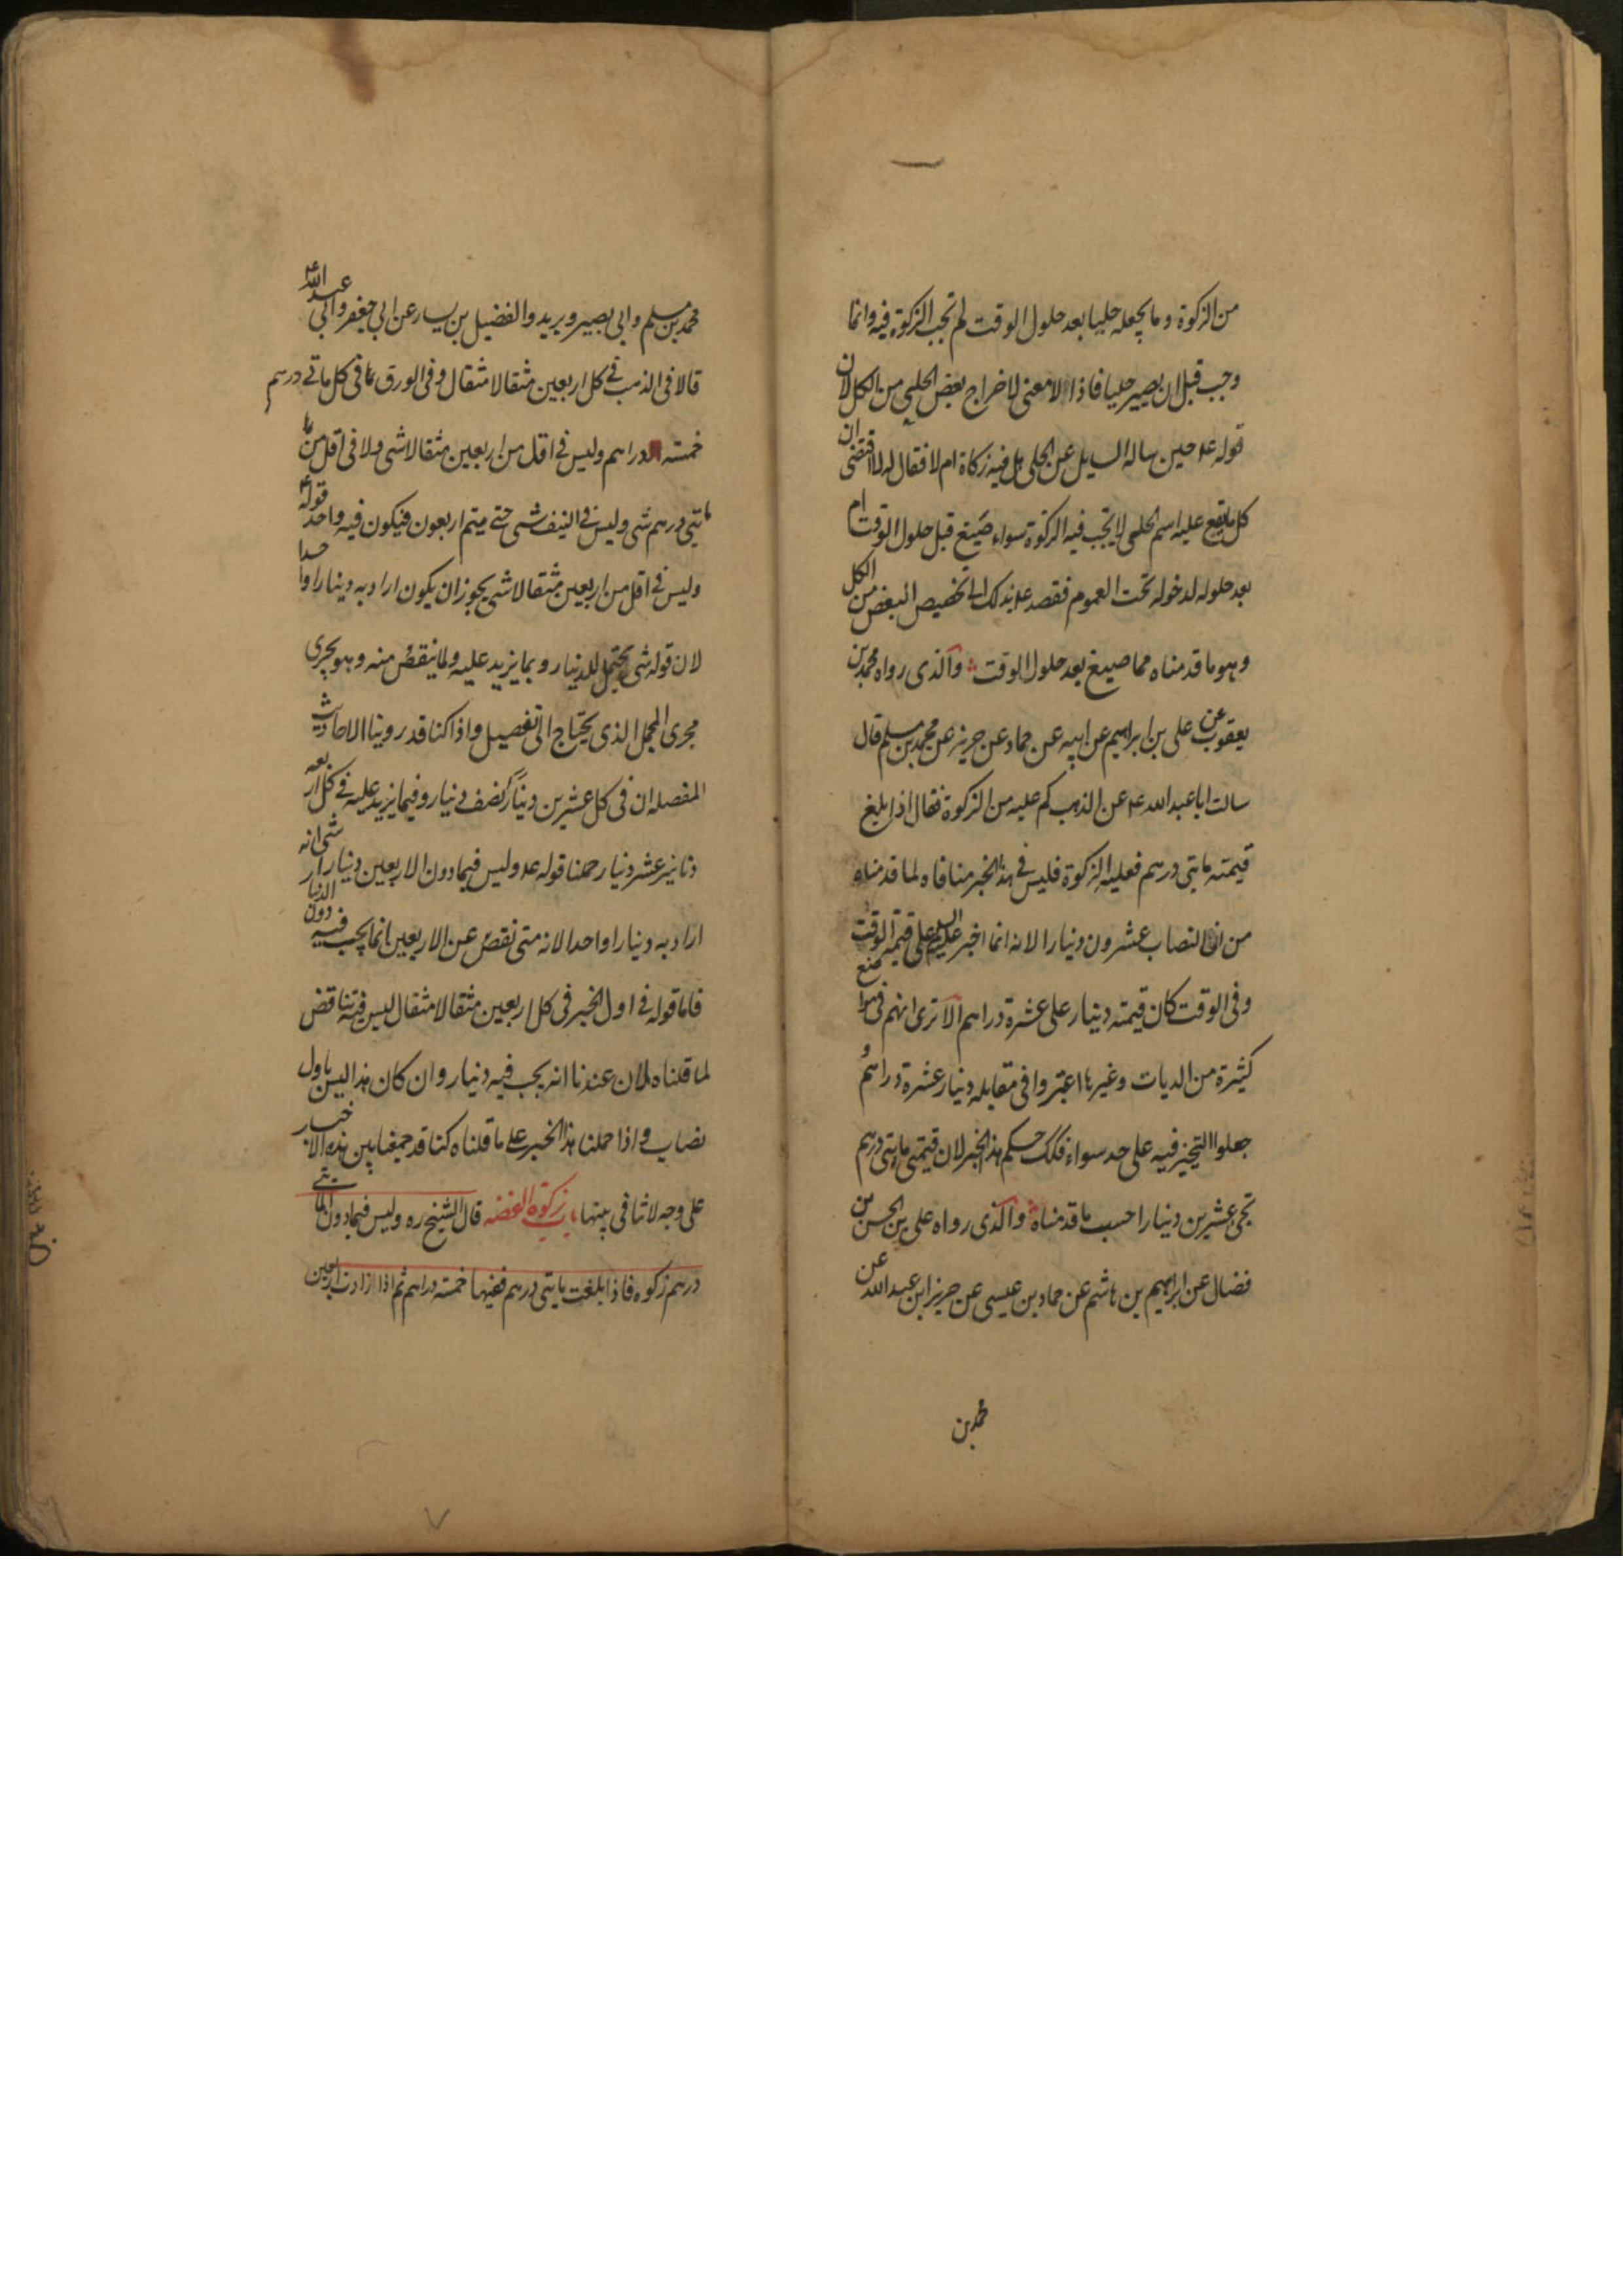 من الزكوة وما يجعله حليا بعد حلول الوقت لم تجب الزكوة فيه وانما
وجب قبل ان يصير حليا فاذا لا معنى لاخراج بعض الحلي من الكل لان
قوله ع حين ساله السايل عن الحلي هل فيه زكاة ام لا فقال له لا اقتضى ان
كل ما يقع عليه اسم الحلي لا تجب فيه الزكوة سواء صيغ قبل حلول الوقت ام
بعد حلوله لدخوله تحت العموم فقصد ع بذلك الى تخصيص البعض من الكل
وهو ما قدمناه مما صيغ بعد حلول الوقت والذى رواه محمد بن
يعقوب عن على بن ابراهيم عن ابيه عن حماد عن حريز عن محمد بن مسلم قال
سالت ابا عبد الله ع عن الذهب كم عليه من الزكوة فقال اذا بلغ
قيمته مايتى درهم فعليه الزكوة فليس فى هذا الخبر منافاه لما قدمناه
من ان النصاب عشرون دينارا لانه انما اخبر عليه السلم على قيمة الوقت
وفى الوقت كان قيمته دينار على عشرة دراهم الا ترى انهم فى مواضع
كثيرة من الديات وغيرها اعتبروا فى مقابله دينار عشرة دراهم و
جعلوا التخير فيه على حد سواء فكك حكم هذا الخبر لان قيمتى مايتى درهم
تجى عشرين دينارا حسب ما قدمناه والذى رواه على بن الحسن بن
فضال عن ابراهيم بن هاشم عن حماد بن عيسى عن حريز ابن عبد الله عن
محمد بن
محمد بن مسلم وابى بصير وبريد والفضيل بن يسار عن ابى جعفر وابى عبد الله ع
قالا فى الذهب فى كل اربعين مثقالا مثقال وفى الورق فى كل ماتى درهم
خمسته دراهم وليس فى اقل من اربعين مثقالا شى ولا فى اقل من
مايتى درهم شى وليس فى النيف شى حتى يتم اربعون فيكون فيه واحد قوله ع
وليس فى اقل من اربعين مثقالا شى يجوز ان يكون اراد به دينارا واحدا
لان قوله شى يحتمل للدينار وبما يزيد عليه ولما ينقص منه وهو يجرى
مجرى المجمل الذى يحتاج الى تفصيل واذا كنا قد روينا الاحاديث
المفصله ان فى كل عشرين دينارا نصف دينار وفيما يزيد عليه فى كل اربعه
دنانير عشر دينار حملنا قوله ع وليس فيما دون الاربعين دينارا شى انه
اراد به دينارا واحدا لانه متى نقص عن الاربعين انما يجب فيه دون الدينار
فاما قوله فى اول الخبر فى كل اربعين مثقالا مثقال ليس فيه تناقض
لما قلناه لان عندنا انه يجب فيه دينار وان كان هذا ليس باول
نصاب واذا حملنا هذا الخبر على ما قلناه كنا قد جمعنا بين هذه الاخبار
على وجه لا تنافى بينها باب زكوة الفضه قال الشيخ ره وليس فيما دون المايتى
درهم زكوه فاذا بلغت مايتى درهم ففيها خمسته دراهم ثم اذا زادت اربعين